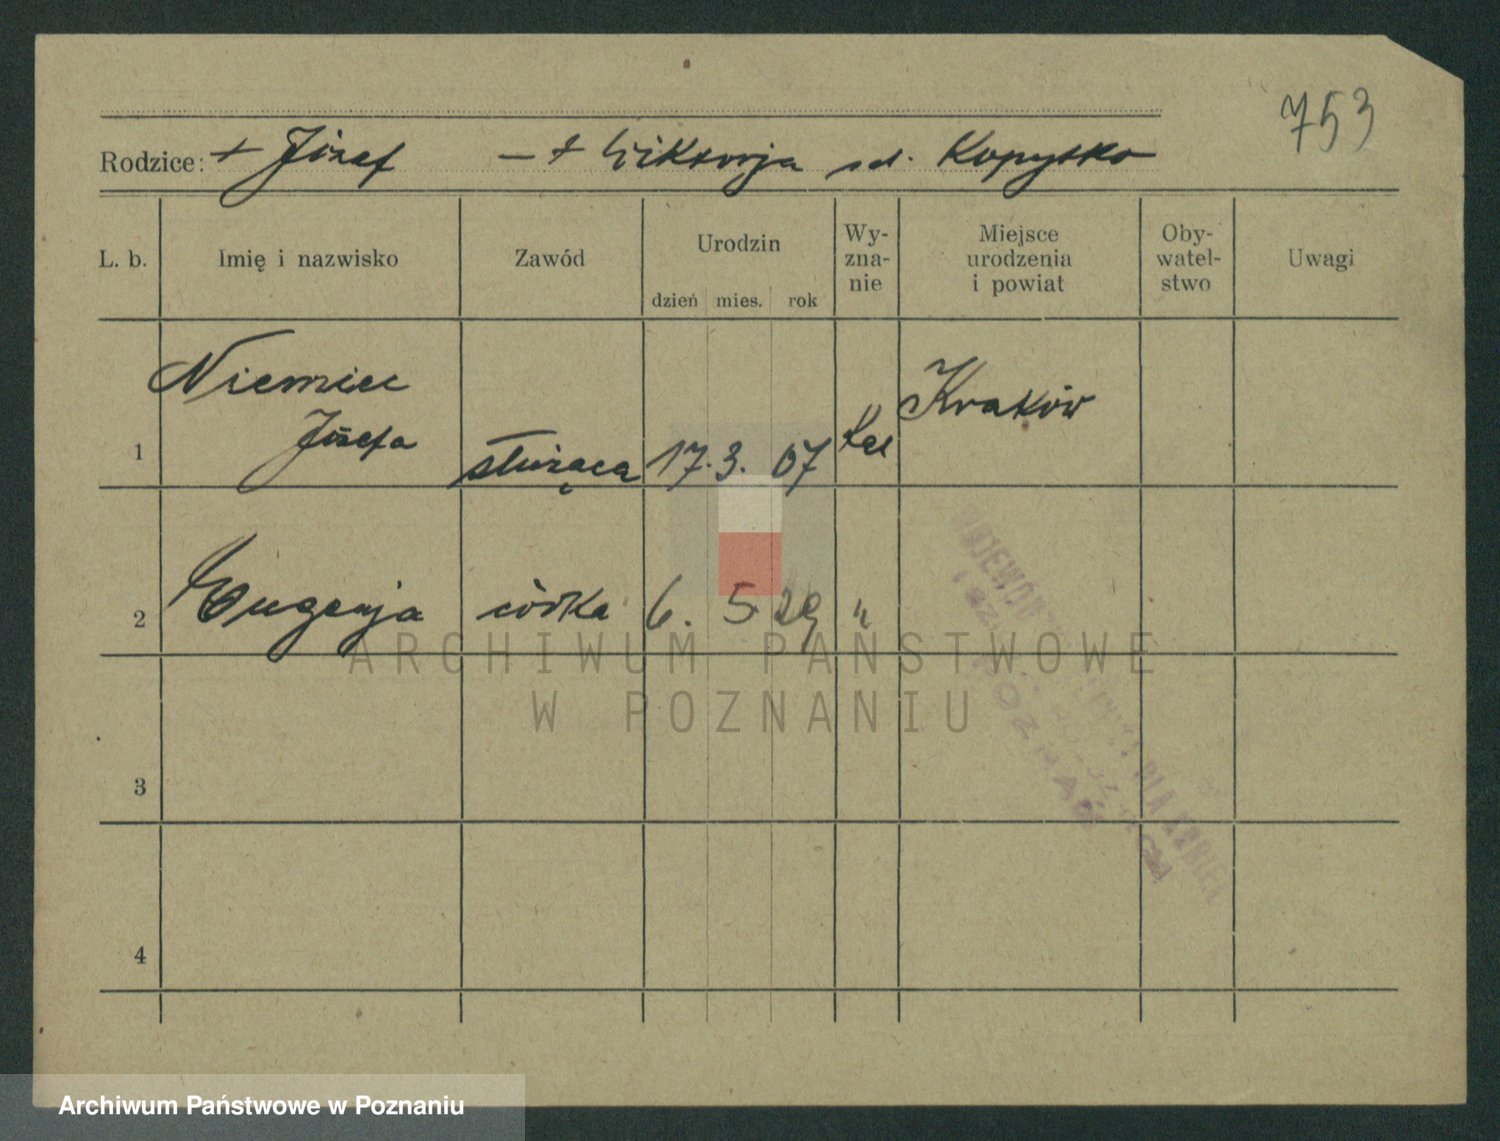 753
Rodzice: + Józef — + Wiktorja zd. Kopytko
L. b. Imię i nazwisko Zawód Urodzin Wy-
zna-
nie Miejsce
urodzenia
i powiat Oby-
watel-
stwo Uwagi
dzień mies. rok
Niemiec Kraków
1 Józefa służąca 17. 3. 07
2 Eugenja córka 6. 5 29 "
ARCHIWUM PAŃSTWOWE
W POZNANIU
3
4
Archiwum Państwowe w Poznaniu